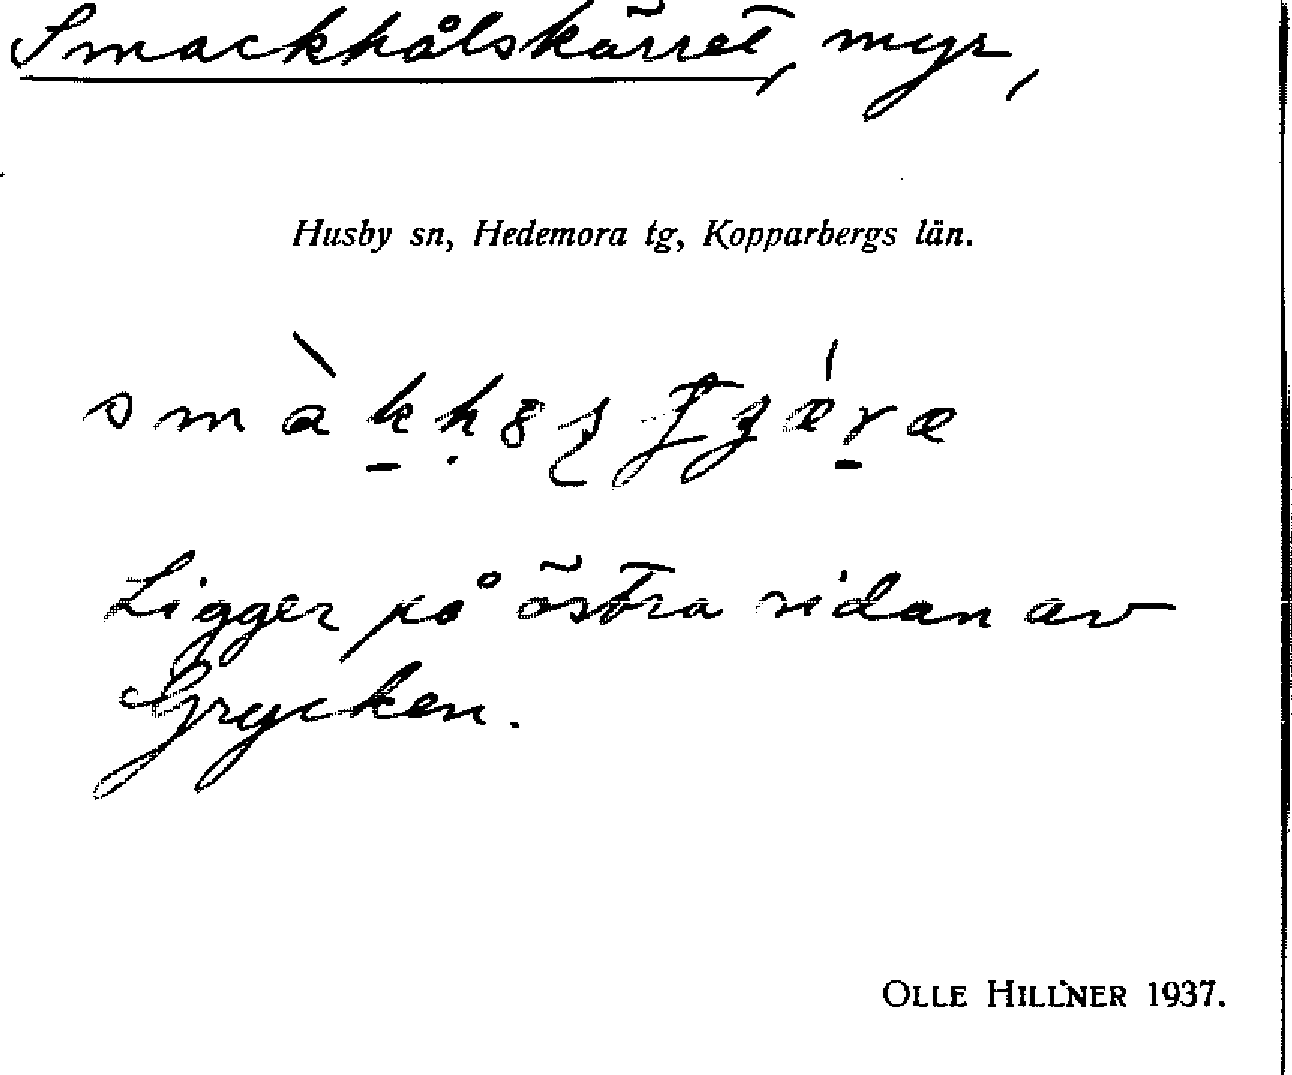 Smackhålskärret, myr,
Husby sn, Hedemora tg, Kopparbergs län.
Ligger på östra sidan av
Grycken.
OLLE HILLNER 1937.